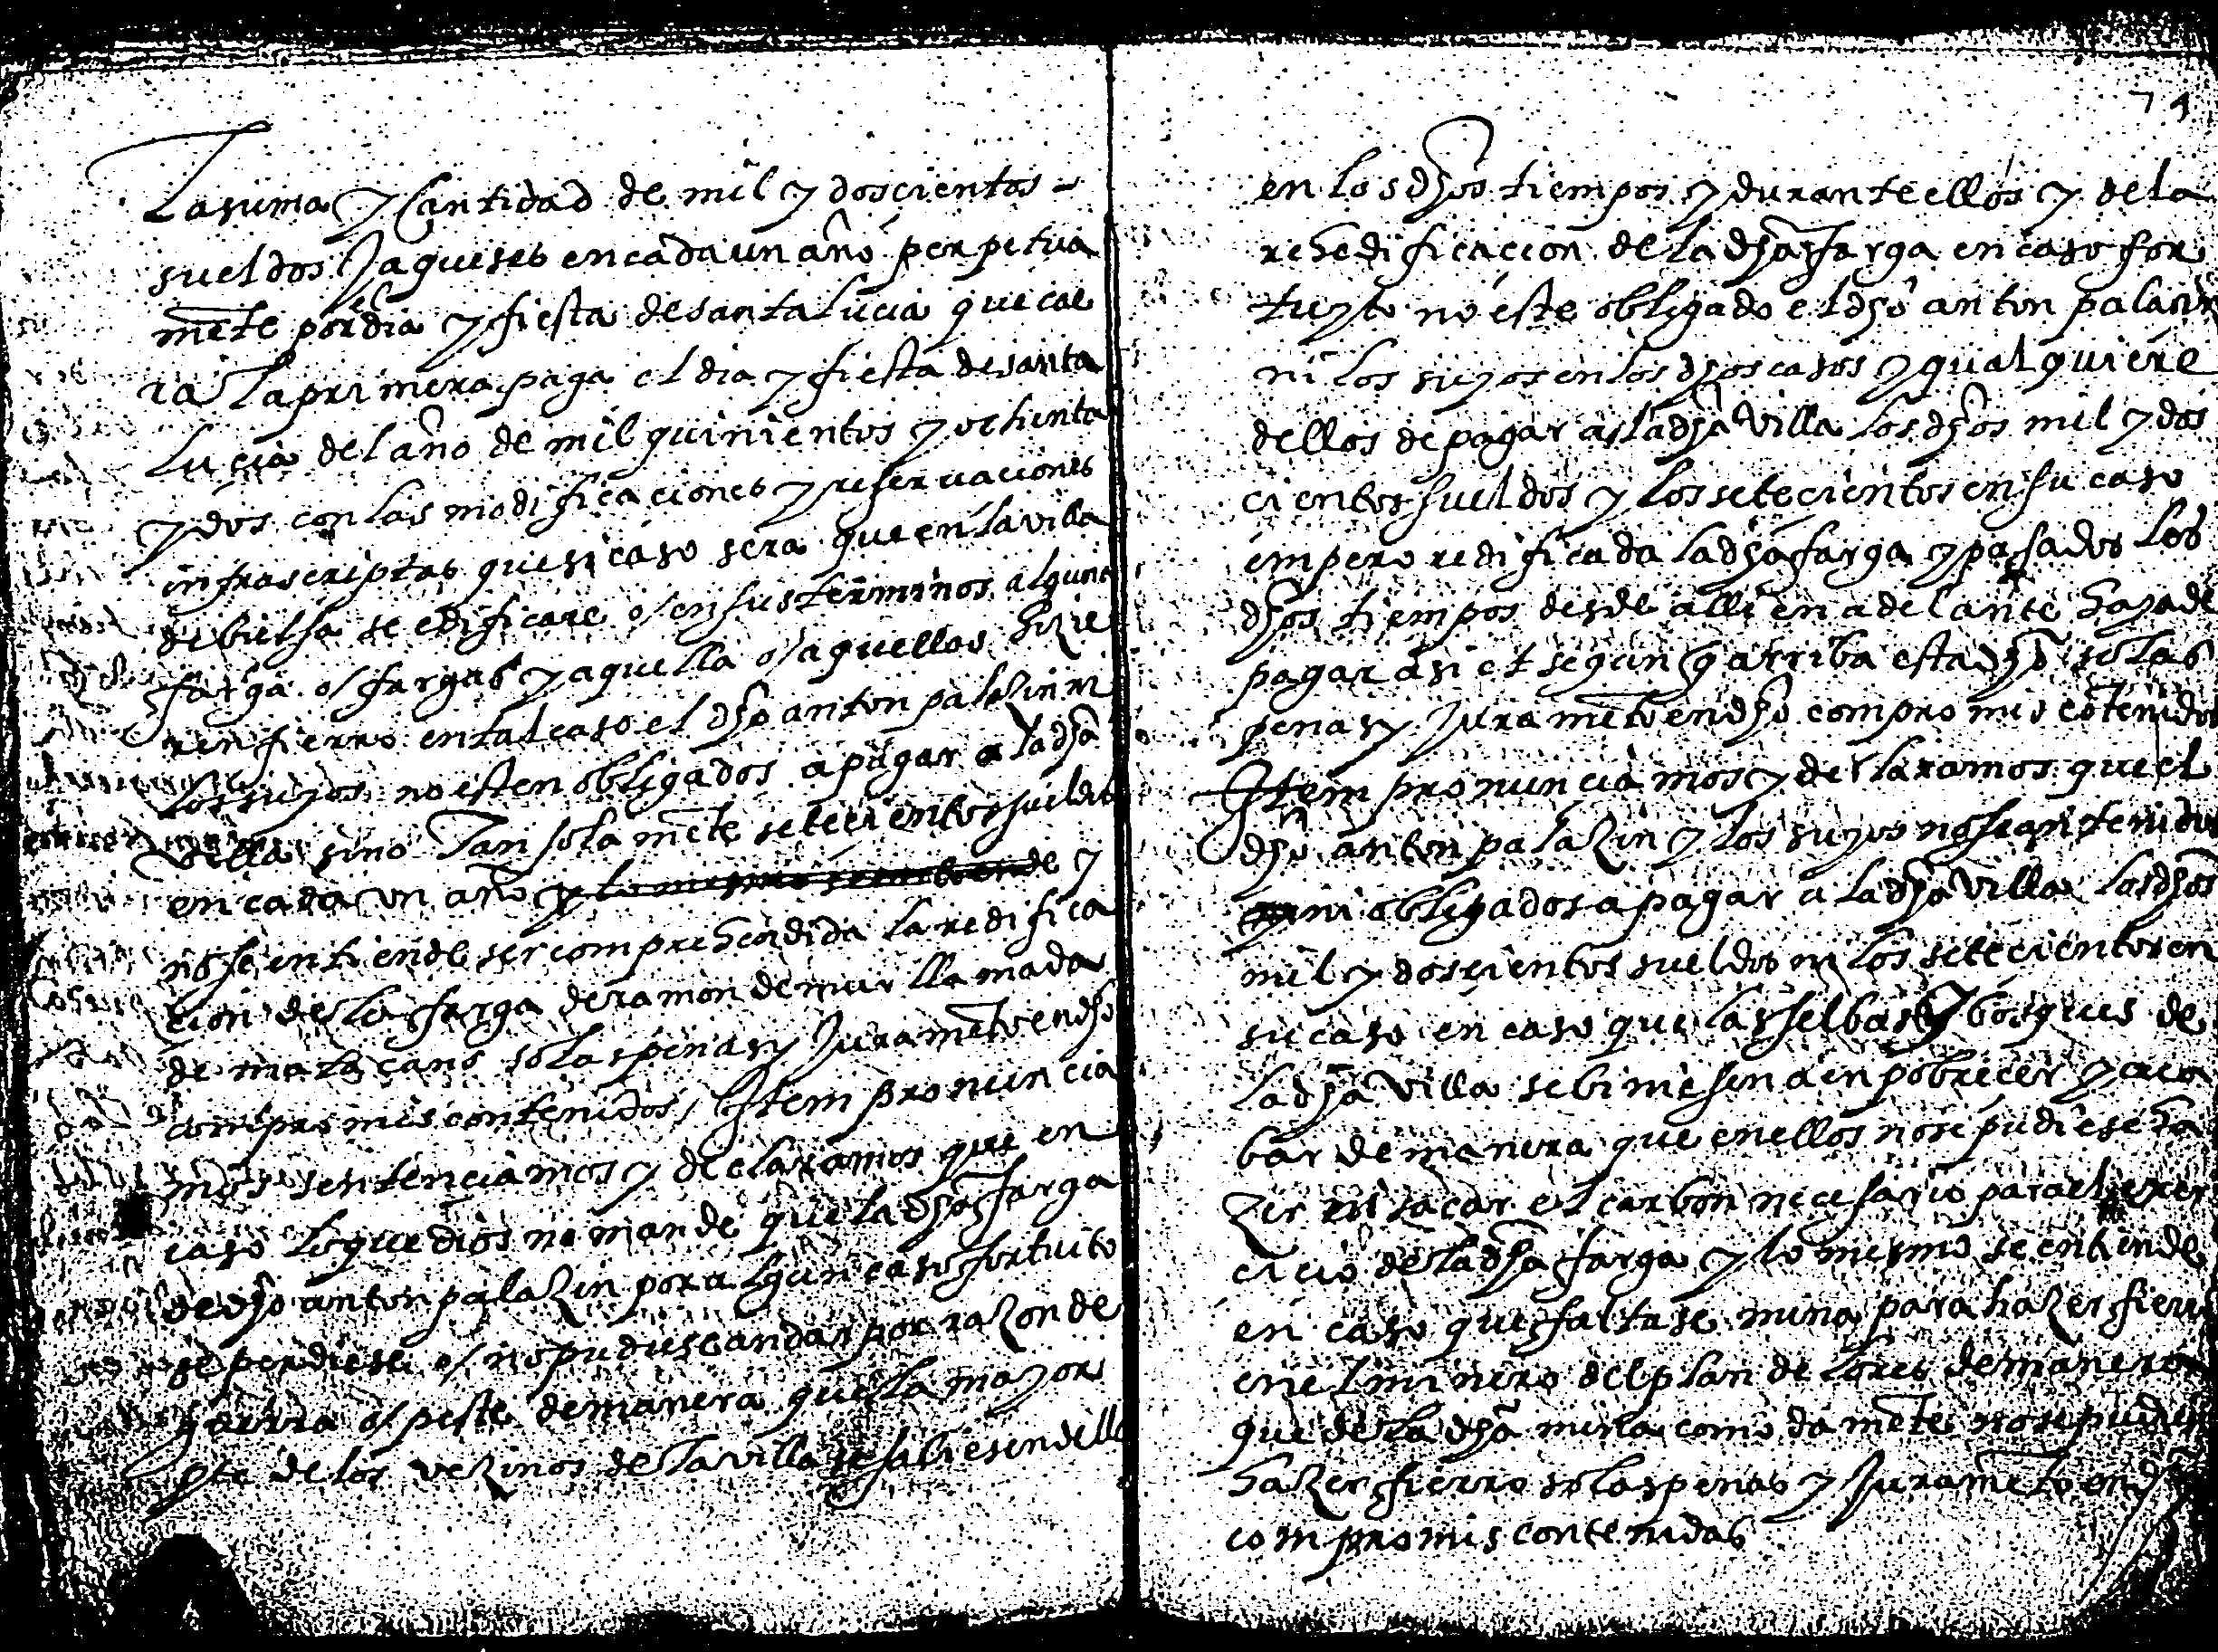 La suma y Cantidad de mil y doscientos -
sueldos Jaqueses en cada un año perpetua
mēte por el dia y fiesta de santa lucia que cae
ra La primera paga el dia y fiesta de santa
Lucia del año de mil quinientos y ochenta
y dos con las modificaciones y reseruaciones
infrascriptas que si caso sera que en la villa
de bielsa se edificare o/ en sus terminos alguna
farga o/ fargas y aquella o/ aquellas hizie
ren fierro en tal caso el dho anton palazin ni
los suyos no esten obligados a pagar a la dha
villa sino Tan solamēte setecientos sueldos
en cada vn año y lo mesmo se entiende y
no se entiende ser comprehendida la redifica
cion de la farga de ramon de mur llamada
de mala cano so las penas y Juramēto en dho
compromis contenidos, Item pronuncia
mos sentenciamos y declaramos que en
caso lo que dios no mande que la dha farga
de dho anton palazin por algun caso fortuito
se perdiese o/ no pudiese andar por razon de
guerra o/ peste de manera que la mayor
pte de los vezinos de la villa se saliesen della
74
en los dhos tiempos y durante ellos y de la
rehedificacion de la dha farga en caso for
tuyto no este obligado el dho anton palazin
ni los suyos en los dhos casos y qualquiere
dellos de pagar a la dha villa los dhos mil y dos
cientos sueldos y los setecientos en su caso
empero redificada la dha farga y pasados los
dhos tiempos desde alli en adelante haya de
pagar asi et segun q arriba esta dho so las
penas y Juramēto en dho compromis cōtenidos
Item pronunciamos y declaramos que el
dho anton palazin y los suyos no sean tenidos
ni obligados a pagar a la dha villa los dhos
mil y doscientos sueldos ni los setecientos en
su caso en caso que las selbas y bosques de
la dha villa se biniesen a enpobrecer y aca
bar de manera que en ellos no se pudiese ha
zer ni sacar el carbon necesario para el exer
cicio de la dha farga y lo mesmo se entiende
en caso que faltase mina para hazer fierro
en el minero del plan de lores de manera
que de la dha mina comodamēte no se pudiese
hazer fierro so las penas y Juramēto en dho
compromis contenidas